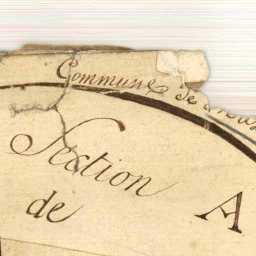 Commune de
Section A
de